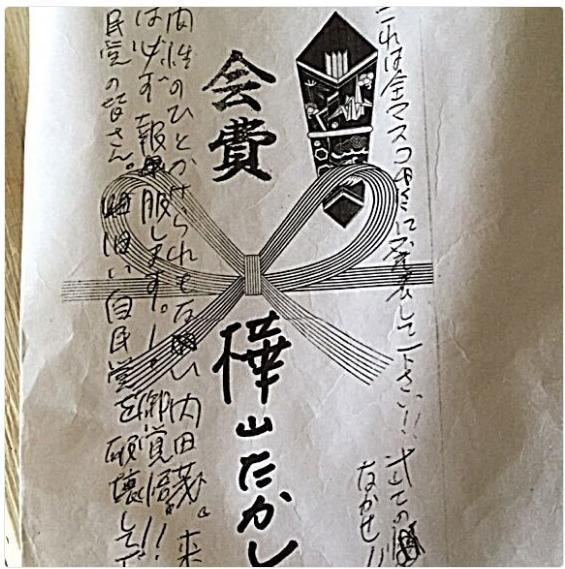 これは全マスコミに発表して下さい!!
なかせ!!
会費
樺山たかし
間性のひとかけらもない内田茂。来
は必ず報服します。!御覚悟!!
民党の皆さん。旧い自民党を破壊して下